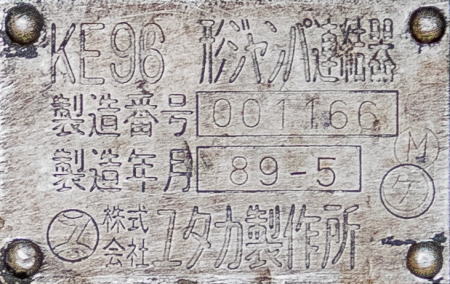 KE96 形ジャンパ連結器
製造番号 001166
製造年月 89-5
M
ケ
株式会社 ユタカ製作所